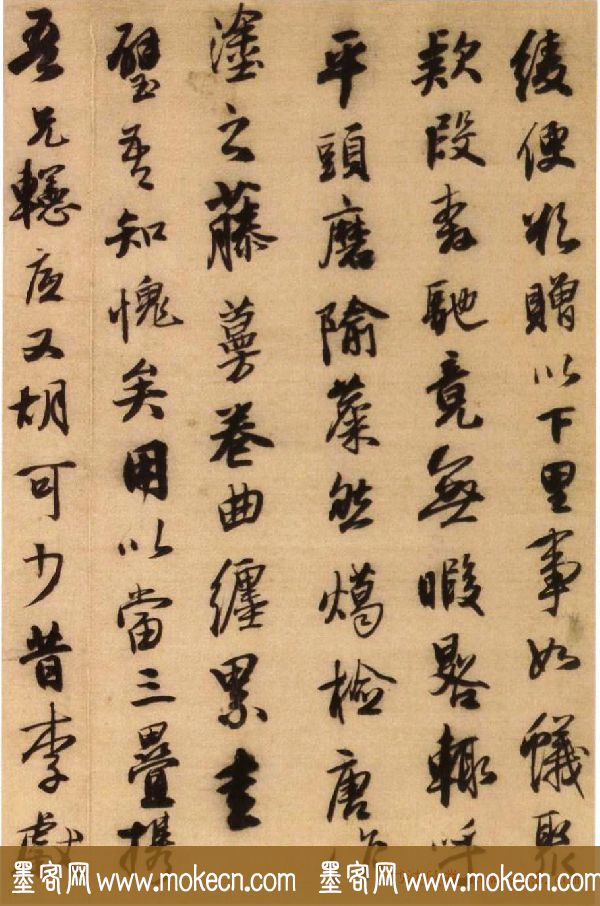 绫便欲赠以下里事如蟻聚
欵段春馳竟無暇晷輒呼
平頭磨隃麋然燭檢唐
塗之藤蔓卷曲纏累圭
璧吾知愧矣用以當三疊攜
吾兄轗应又胡可少昔李獻
墨客网 www.mokecn.com 墨客网 www.mokecn.com